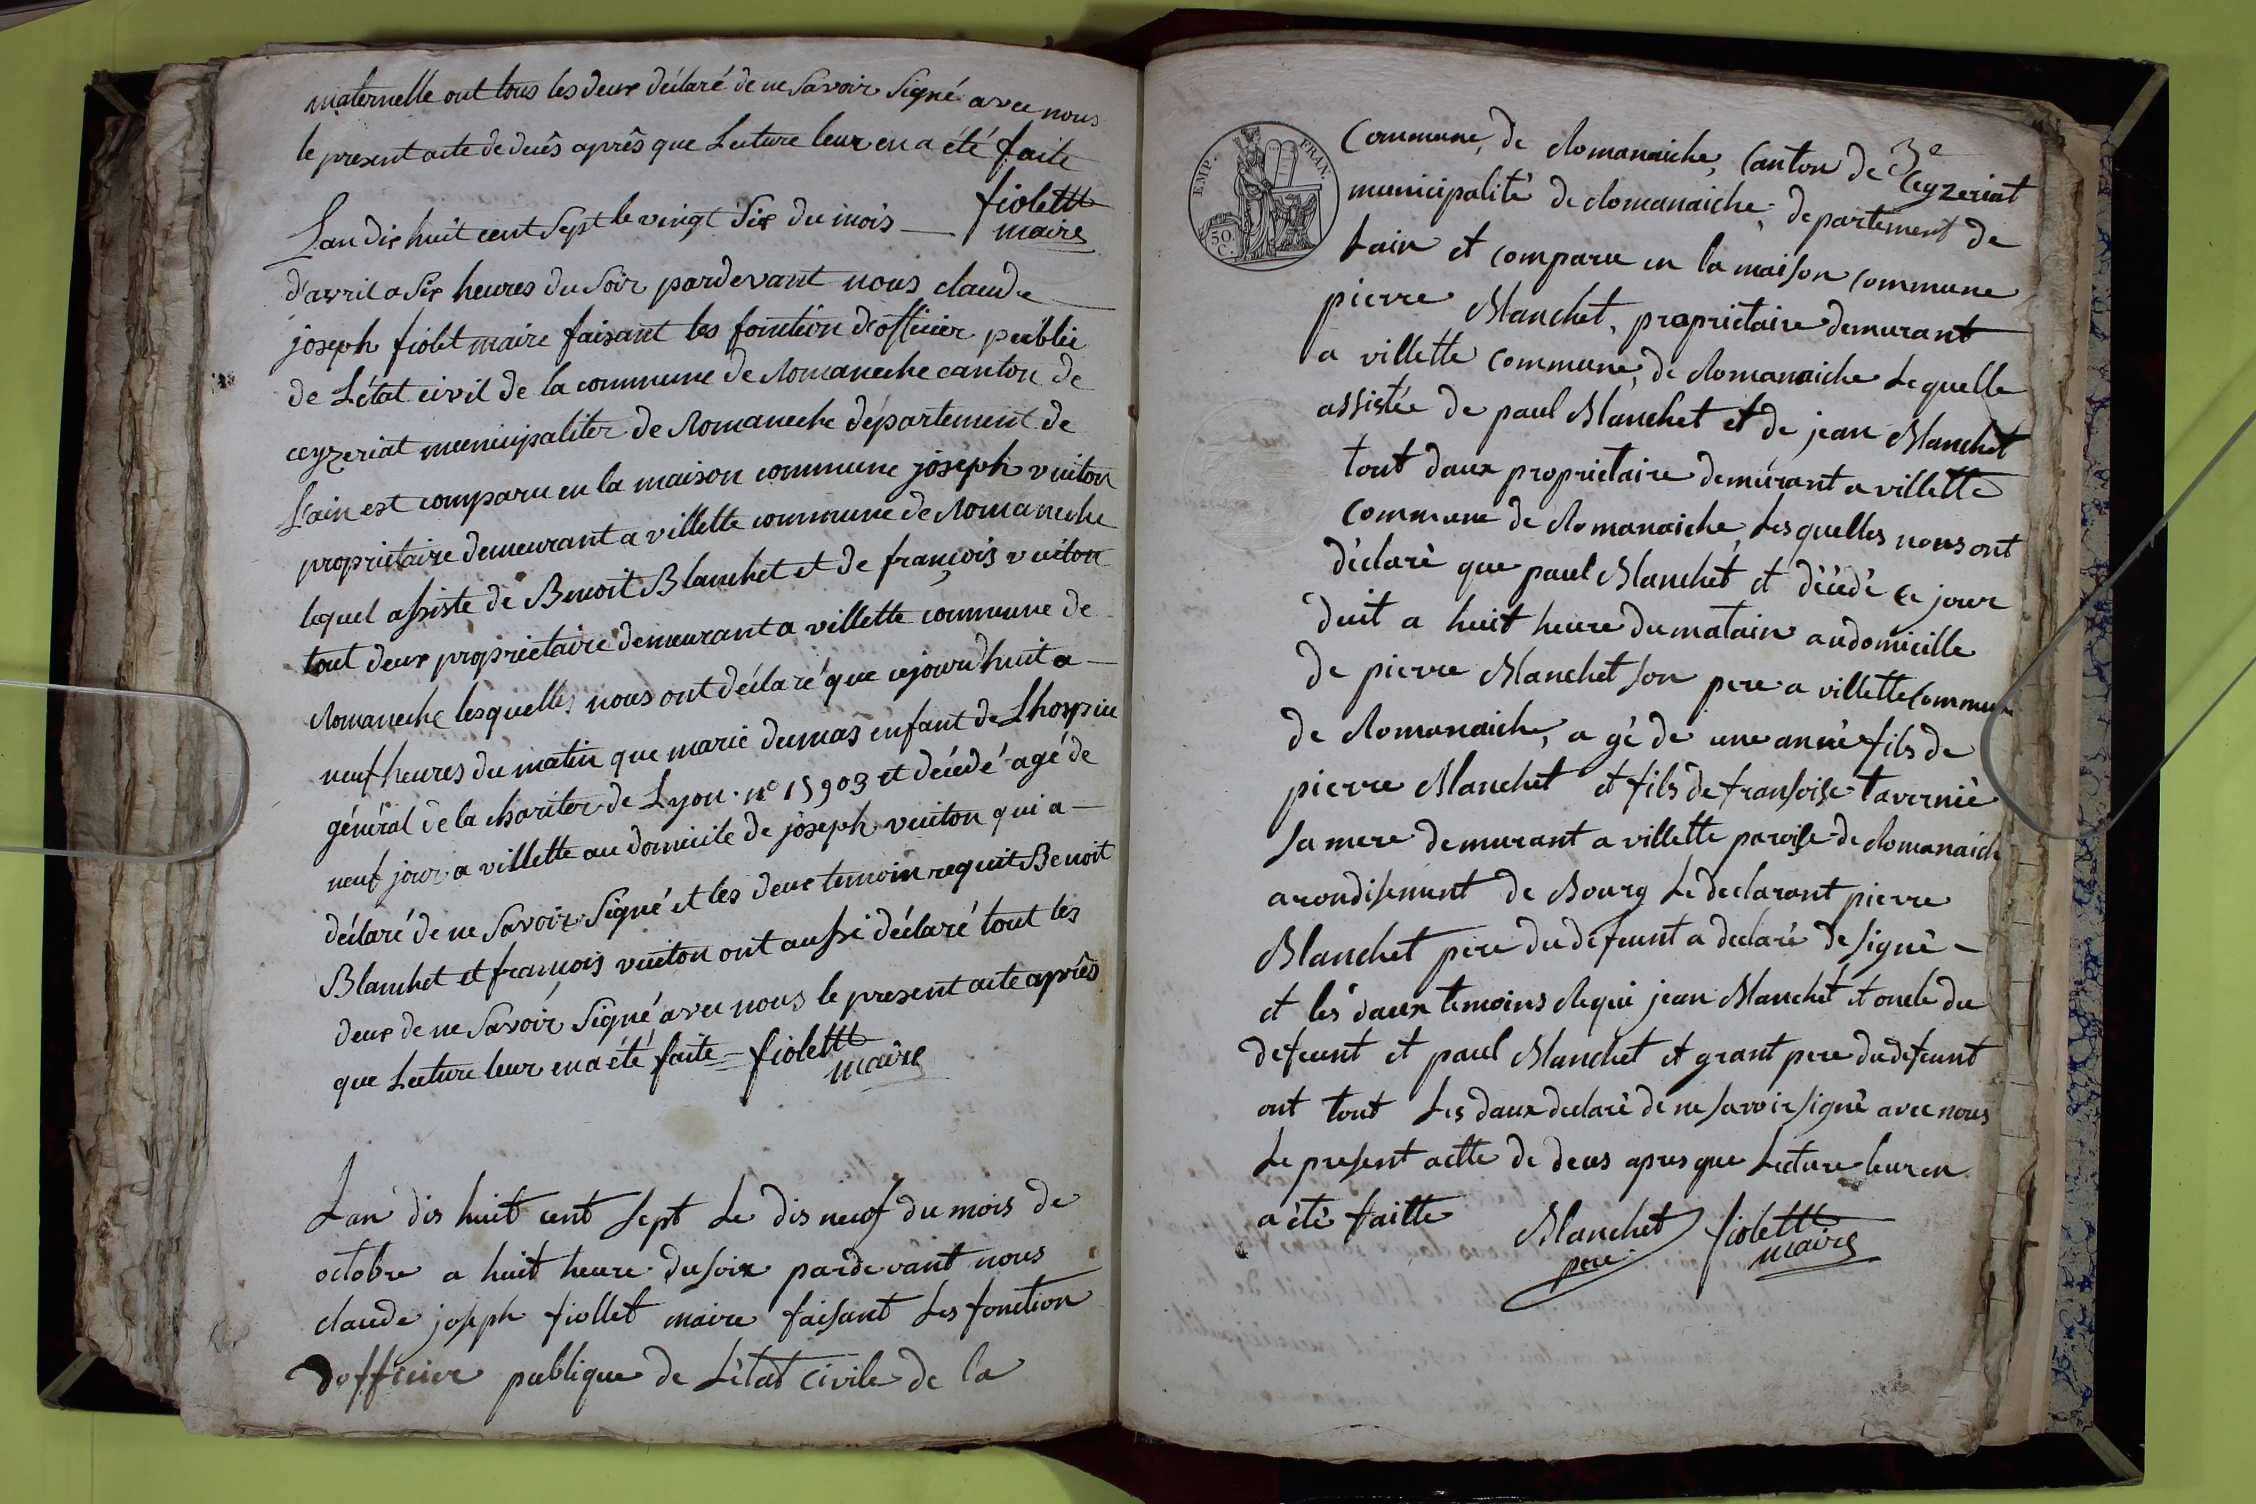 maternelle ont tous les deux déclaré de ne Savoir Signé avec nous
le present acte de decês aprês que Lecture leur en a été faite
fiolettt
maire
Lan dix huit cent Sept le vingt Six du mois —
d'avril a Six heures du Soir pardevant nous claude
joseph fiolet maire faisant les fonction d'officier public
de L'état civil de la commune de Romaneche canton de
ceyzeriat municipaliter de Romaneche département de
L'ain est comparu en la maison commune joseph vuiton
proprietaire demeurant a villette commune de Romaneche
lequel assiste de Benoit Blanchet et de françois vuiton
tout deux proprietaire demeurant a villette commune de
Romaneche lesquelles nous ont déclaré que cejourd'huit a —
neuf heures du matin que marie dumas enfant de L'hospice
général de la chariter de Lyon. n° 15903 et décédé agé de
neuf jour a villette au domicile de joseph vuiton qui a —
déclaré de ne Savoir Signé et les deux temoin requit Benoit
Blanchet et françois vuiton ont aussi déclaré tout les
deux de ne Savoir Signé avec nous le present acte aprês
que Lecture leur en a été faite — fiolettt
maire
Lan dis huit cent sept Le dis neuf du mois de
octobre a huit heure du soir pardevant nous
claude joseph fiollet maire faisant Les fonction
dofficier publique de L'état civile de la
EMP. FRAN.
50.
C.
3e
Commune de Romanaiche, Canton de Ceyzeriat
municipalité de Romanaiche, departement de
Lain et comparu en la maison commune
pierre Blanchet, proprietaire demurant
a villette commune, de Romanaiche Lequelle
assistée de paul Blanchet et de jean Blanchet
tout daux proprietaire demurant a villette
commune de Romanaiche, Lesquelles nous ont
déclaré que paul Blanchet et décédé ce jour
duit a huit heure du matain au domicille
de pierre Blanchet son pere a villette Commune
de Romanaiche, a gé de une année fils de
pierre Blanchet et fils de fransoise taverniè
sa mere demurant a villette paroise de Romanaich
arondisement de Bourg Le declarant pierre
Blanchet pere du defeunt a declaré de signè —
et les daux temoins Requi jean Blanchet et oncle du
defeunt et paul Blanchet et grant pere du defeunt
ont tout Les daux declaré de ne savoir signè avec nous
Le present actte de deces apres que Lecture leur en
a été faitte
Blanchet
pere
fiolettt
maire